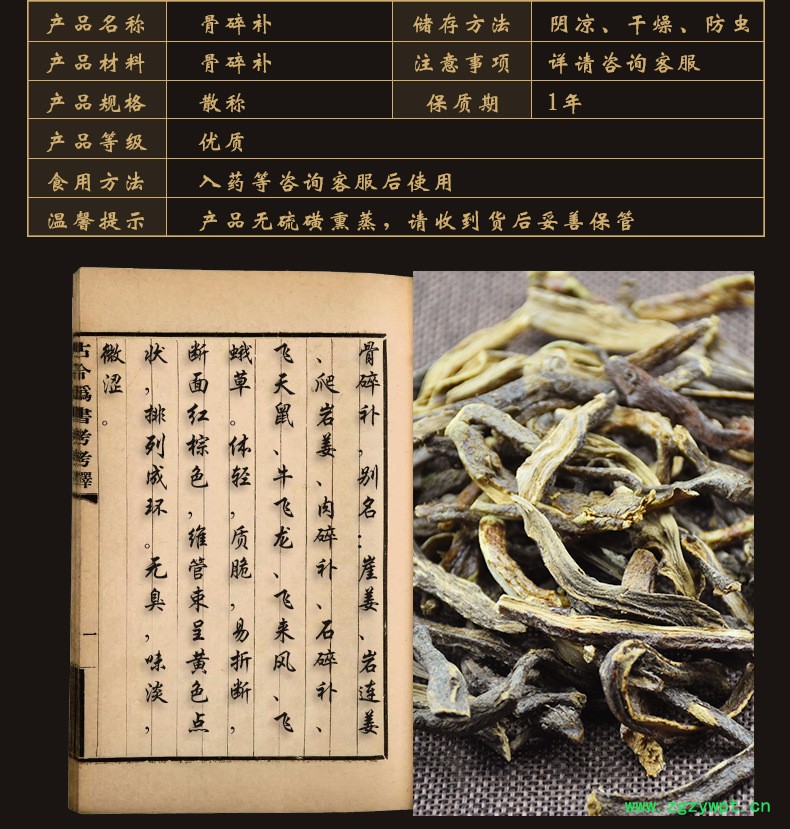 产品名称 骨碎补 储存方法 阴凉、干燥、防虫
产品材料 骨碎补 注意事项 详请咨询客服
产品规格 散称 保质期 1年
产品等级 优质
食用方法 入药等咨询客服后使用
温馨提示 产品无硫磺熏蒸，请收到货后妥善保管
骨碎补，别名：崖姜、岩连姜
、爬岩姜、肉碎补、石碎补、
飞天鼠、牛飞龙、飞来风、飞
蛾草。体轻，质脆，易折断，
断面红棕色，维管束呈黄色点
状，排列成环。无臭，味淡，
微涩。
古今偽書考考釋
一
www.zgzywpt.cn